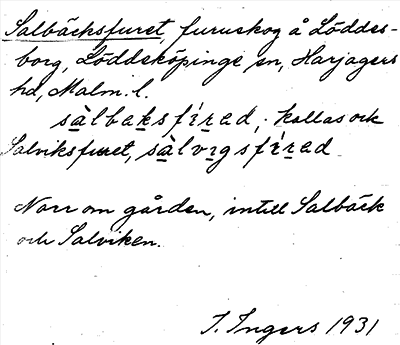 Salbäcksfuret, furuskog å Löddes-
borg, Löddeköpinge sn, Harjagers
hd, Malm. l.
sàlbaksfírəd; kallas ock
Salviksfuret, sàlvigsfírəd
Norr om gården, intill Salbäck
och Salviken.
I. Ingers 1931